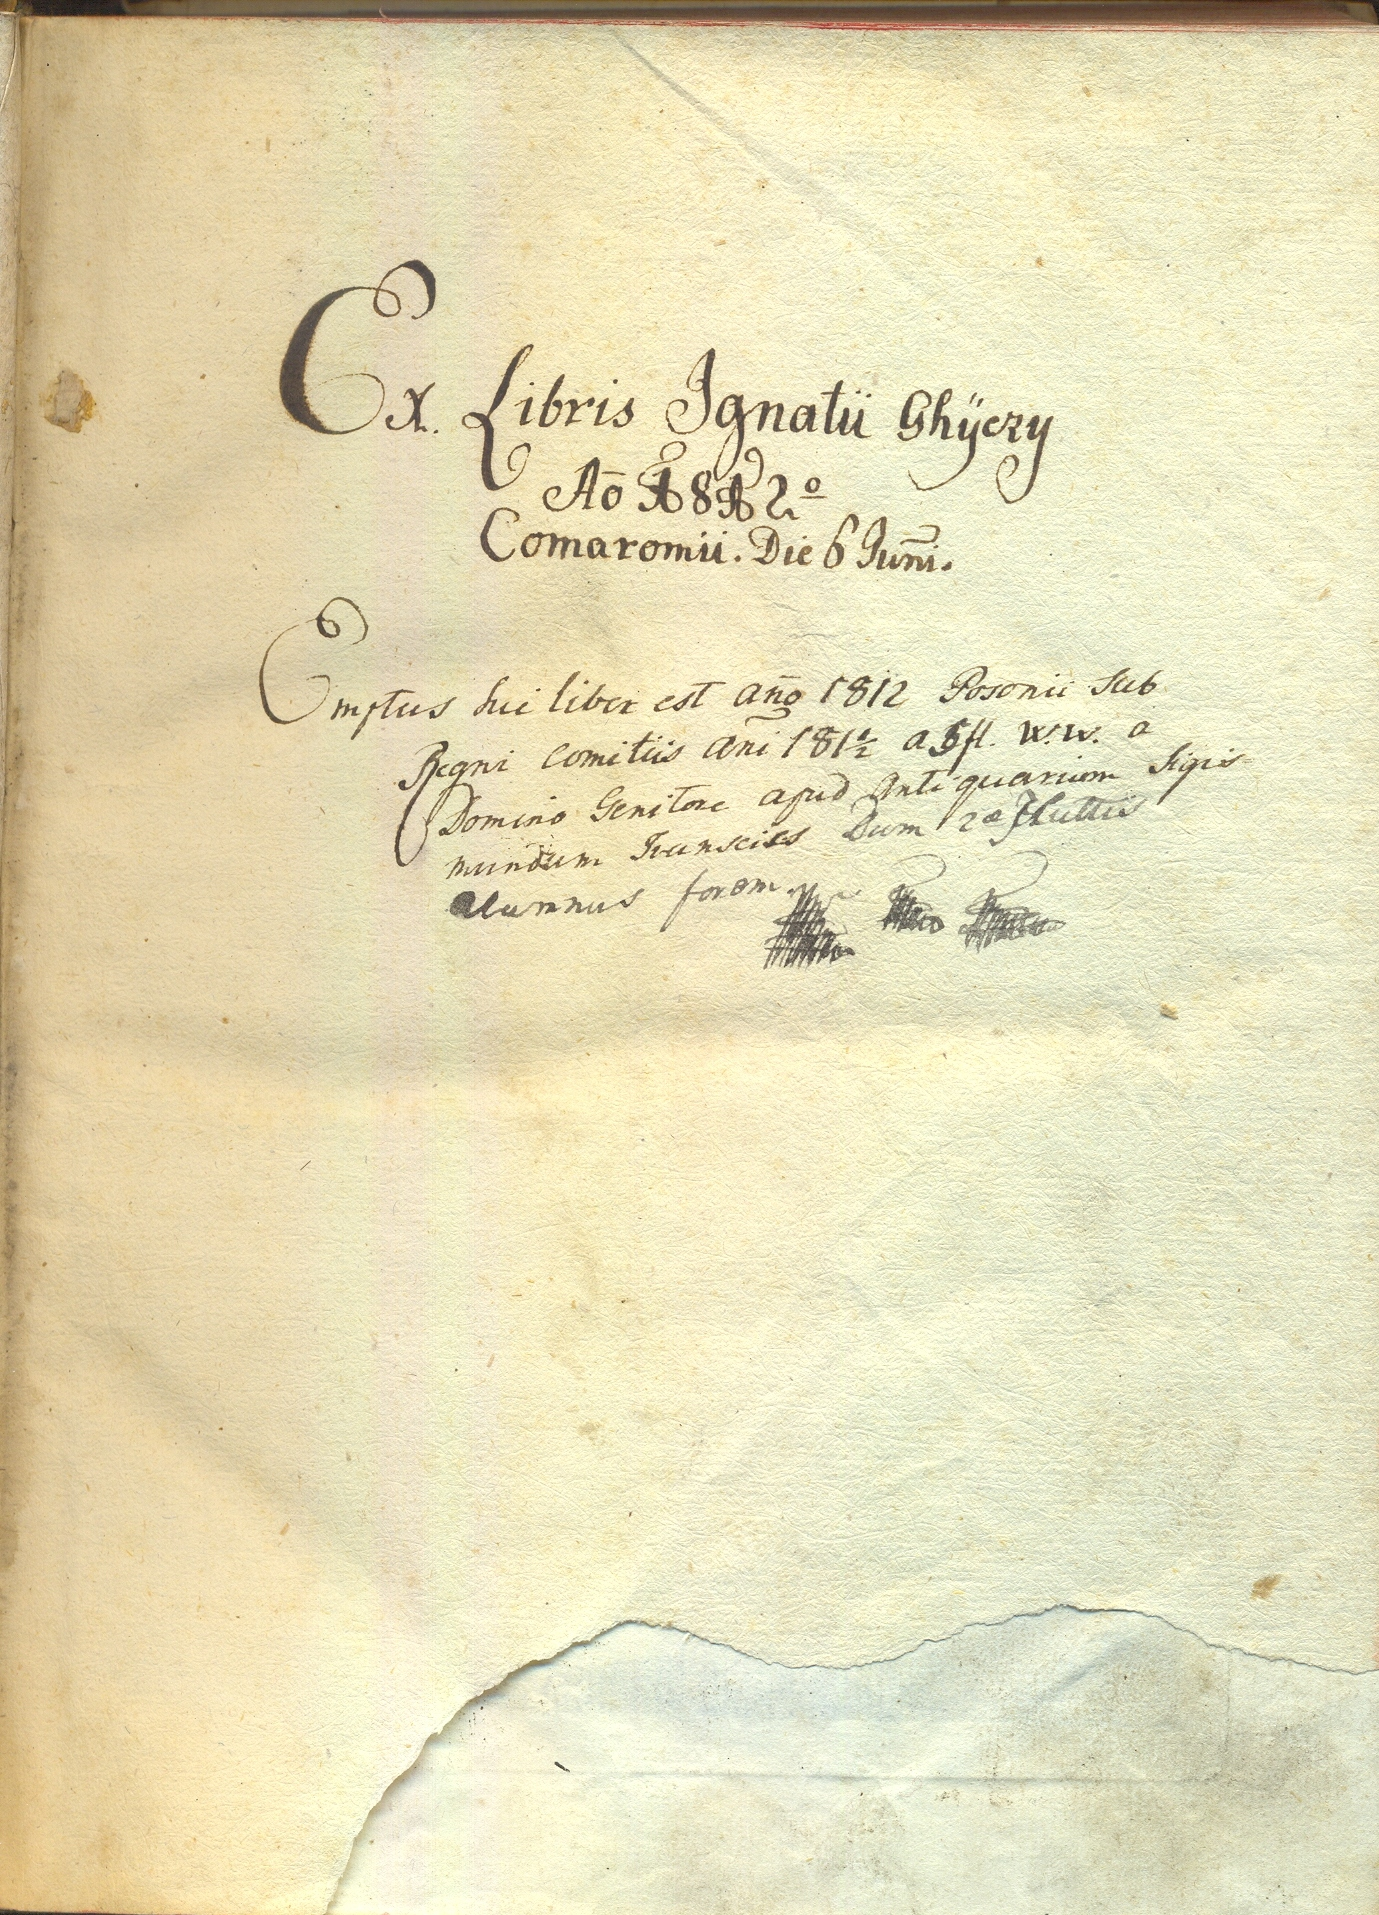 Ex. Libris Ignatii Ghÿczy
Aō 1812º
Comaromii. Die 6 Juni̅i.
Emptus hic liber est an̅o 1812 Posonii sub
Regni Comitiis an̅i 181½ a 5 fl. w.w. a
Domino Genitore apud Antiquarium Sigis-
mundum Ivanscics Dum 2æ
Alumnus forem.